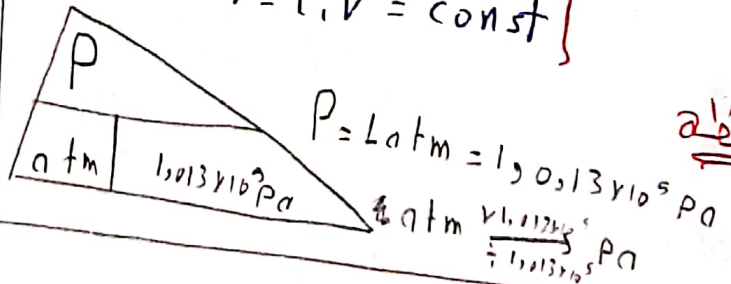 = const
P
atm 1,013×10⁵ Pa
P = 1 atm = 1,0,13×10⁵ Pa
atm ×1,013×10⁵ Pa
÷ 1,013×10⁵